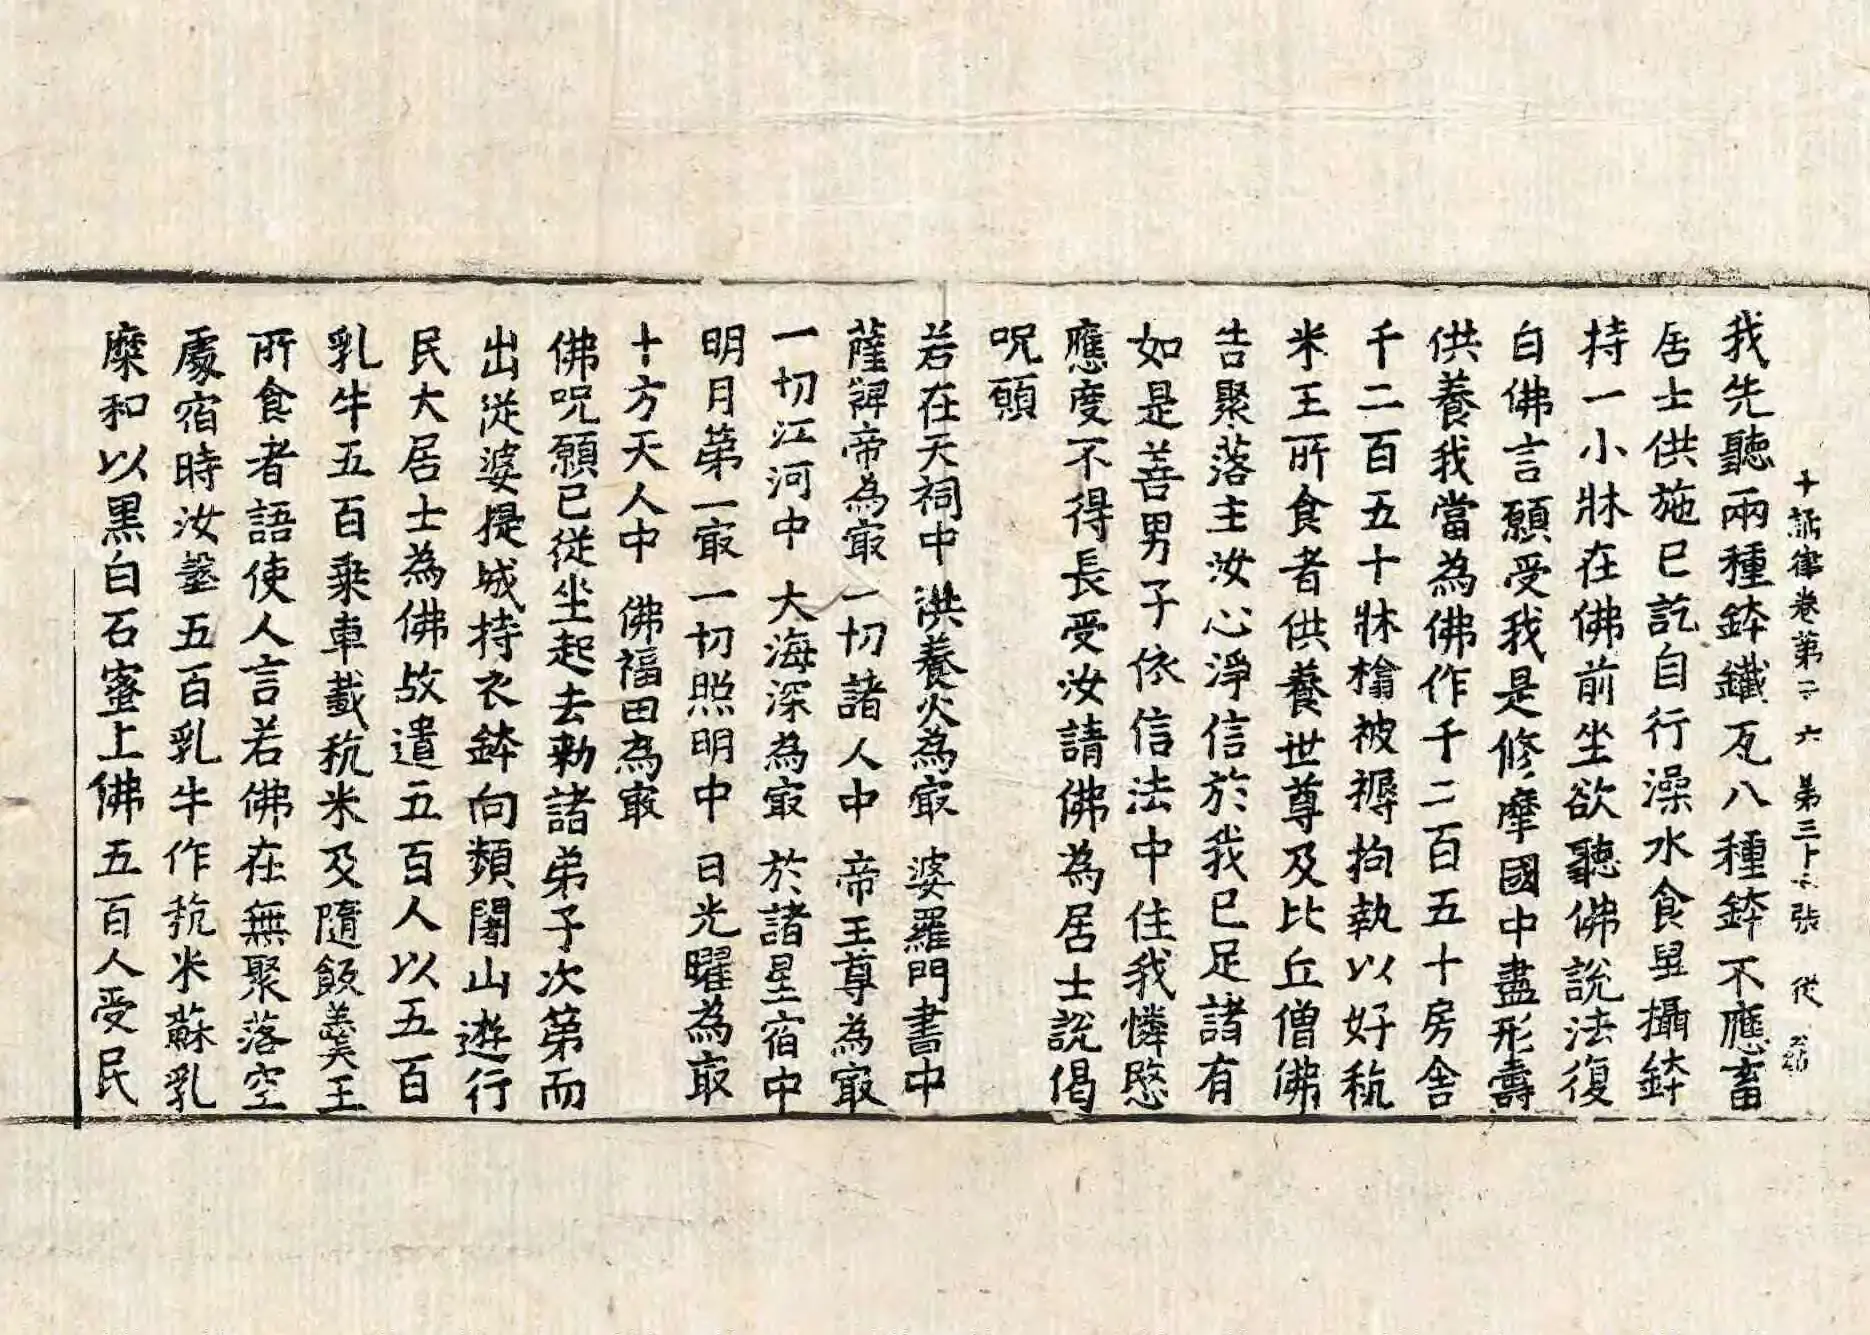 十誦律卷第二六 第三十六張 從
我先聽兩種鉢鐵瓦八種鉢不應畜
居士供施已訖自行澡水食畢攝鉢
持一小牀在佛前坐欲聽佛說法復
白佛言願受我是修摩國中盡形壽
供養我當為佛作千二百五十房舍
千二百五十牀橣被褥拘執以好秔
米王所食者供養世尊及比丘僧佛
告聚落主汝心淨信於我已足諸有
如是善男子依信法中住我憐愍
應度不得長受汝請佛為居士說偈
呪願
若在天祠中 供養火為㝡 婆羅門書中
薩鞞帝為㝡 一切諸人中 帝王尊為㝡
一切江河中 大海深為㝡 於諸星宿中
明月第一㝡 一切照明中 日光曜為㝡
十方天人中 佛福田為㝡
佛呪願已從坐起去勑諸弟子次第而
出從婆提城持衣鉢向頞闍山遊行
民大居士為佛故遣五百人以五百
乳牛五百乘車載秔米及隨飯羹王
所食者語使人言若佛在無聚落空
處宿時汝𤚲五百乳牛作秔米蘇乳
糜和以黑白石蜜上佛五百人受民